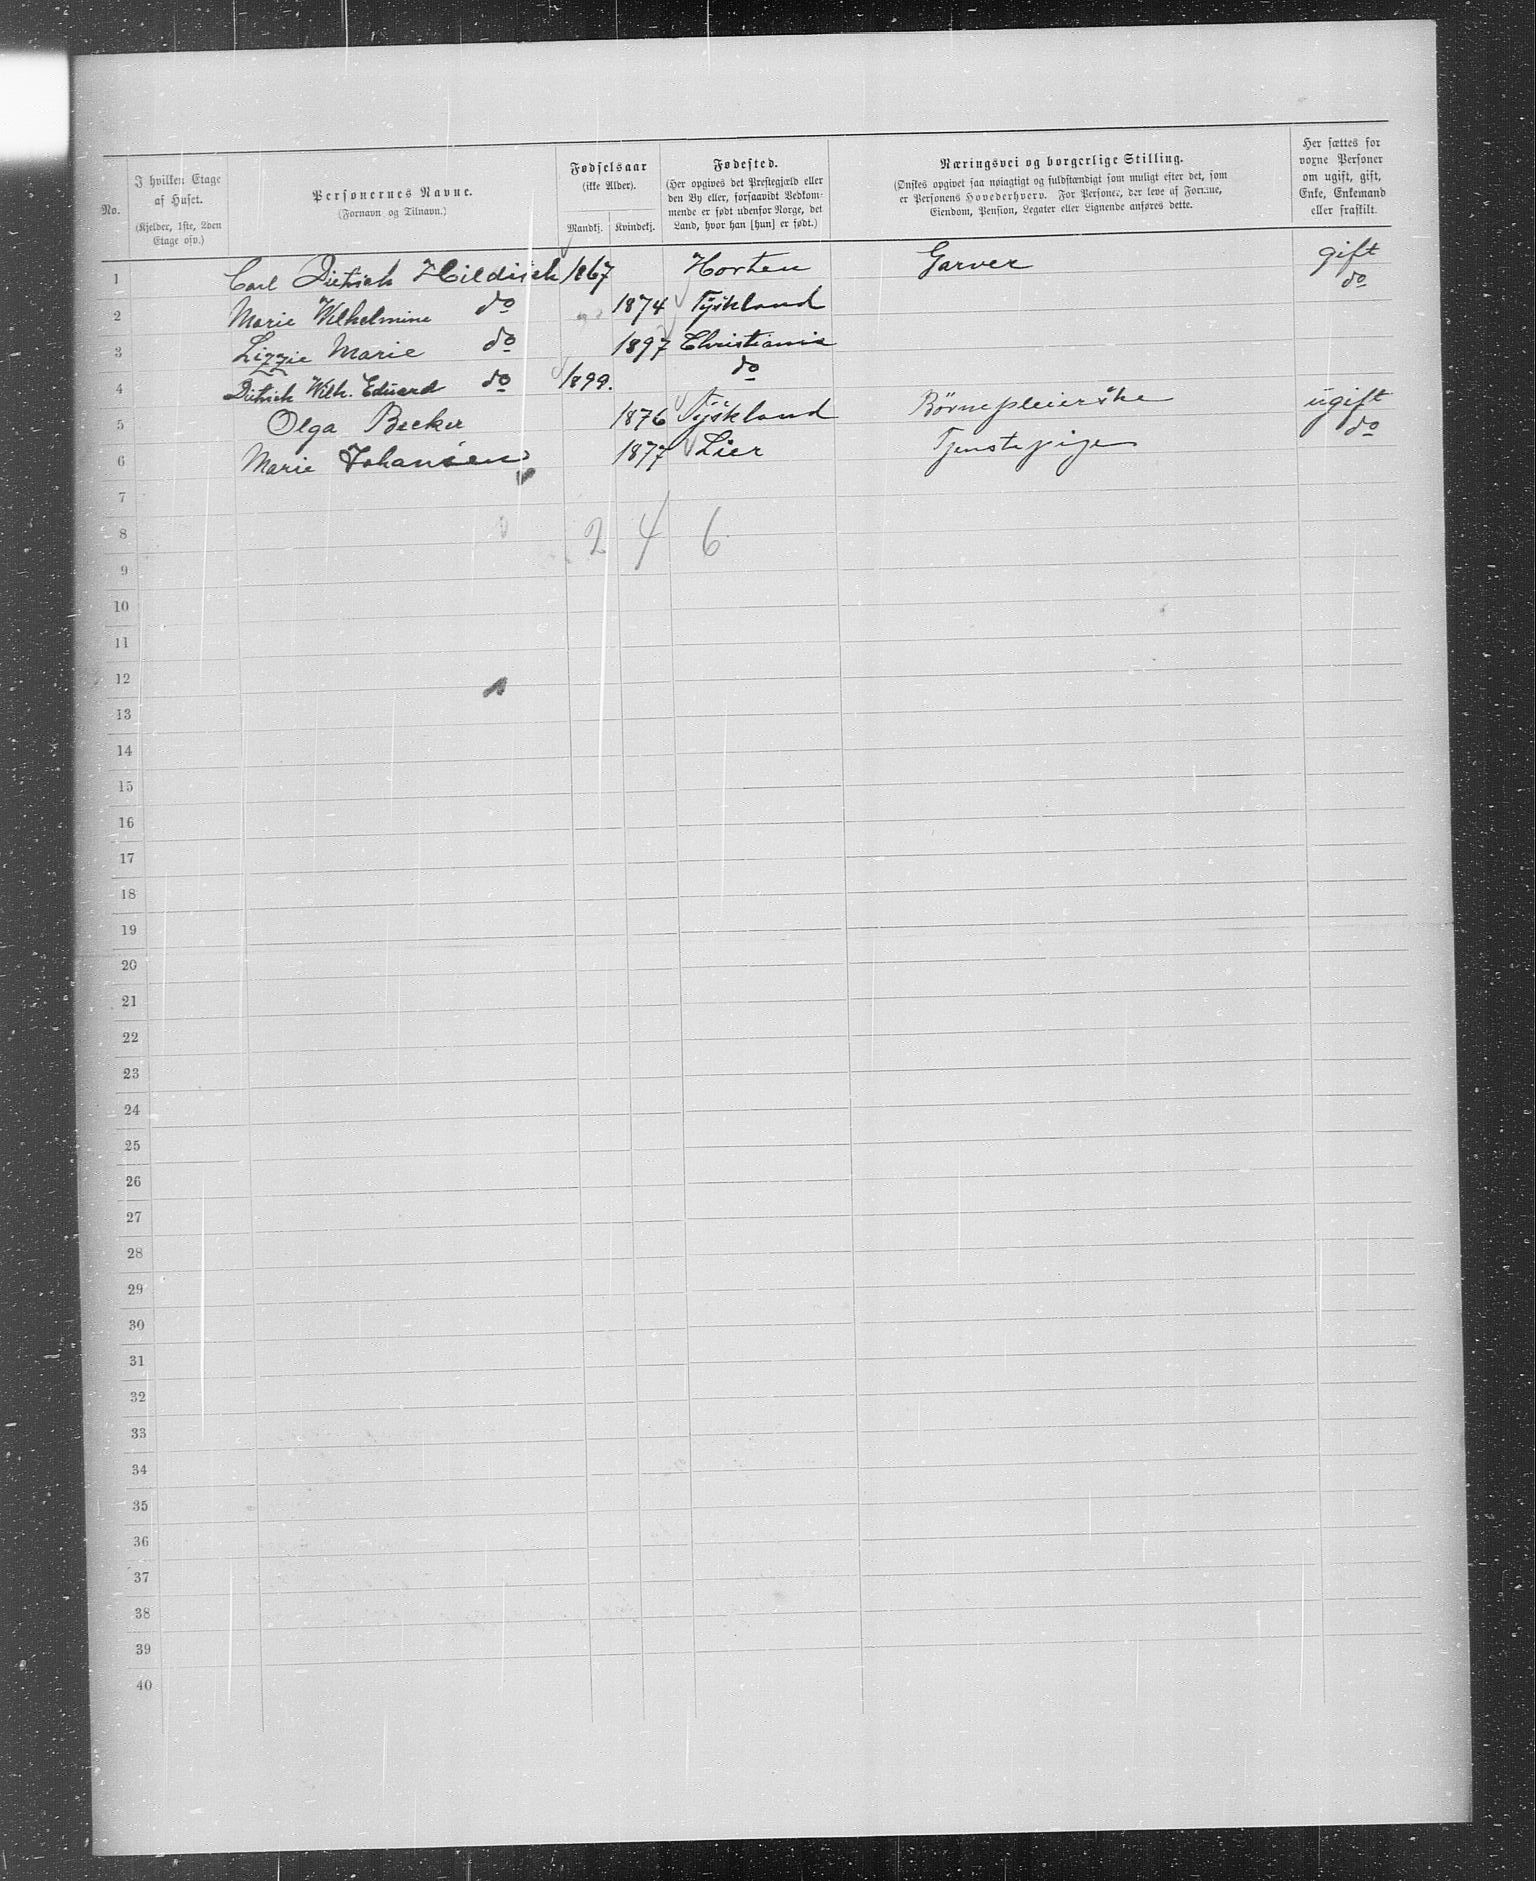 No. | I hvilken Etage af Huset. (Kjelder, 1ste, 2den Etage osv.) | Personernes Navne. (Fornavn og Tilnavn.) | Fødselsaar (ikke Alder). Mandkj. | Kvindekj. | Fødested. (Her opgives det Prestegjæld eller den By eller, forsaavidt Vedkommende er født udenfor Norge, det Land, hvor han [hun] er født.) | Næringsvei og borgerlige Stilling. (Ønskes opgivet saa nøiagtigt og fuldstændigt som muligt efter det, som er Personens Hovederhverv. For Personer, der leve af Formue, Eiendom, Pension, Legater eller Lignende anføres dette. | Her sættes for voxne Personer om ugift, gift, Enke, Enkemand eller fraskilt.
1 Carl Dietrich Hildisch 1867 Horten Garver gift
2 Marie Wilhelmine do 1874 Tyskland do
3 Lizzie Marie do 1897 Christiania
4 Dietrich Wilh. Eduard do 1899. do
5 Olga Becker 1876 Tyskland Börnepleierske ugift
6 Marie Johansen 1877 Lier Tjenstepige do
7
8 2 4 6
9
10
11
12
13
14
15
16
17
18
19
20
21
22
23
24
25
26
27
28
29
30
31
32
33
34
35
36
37
38
39
40